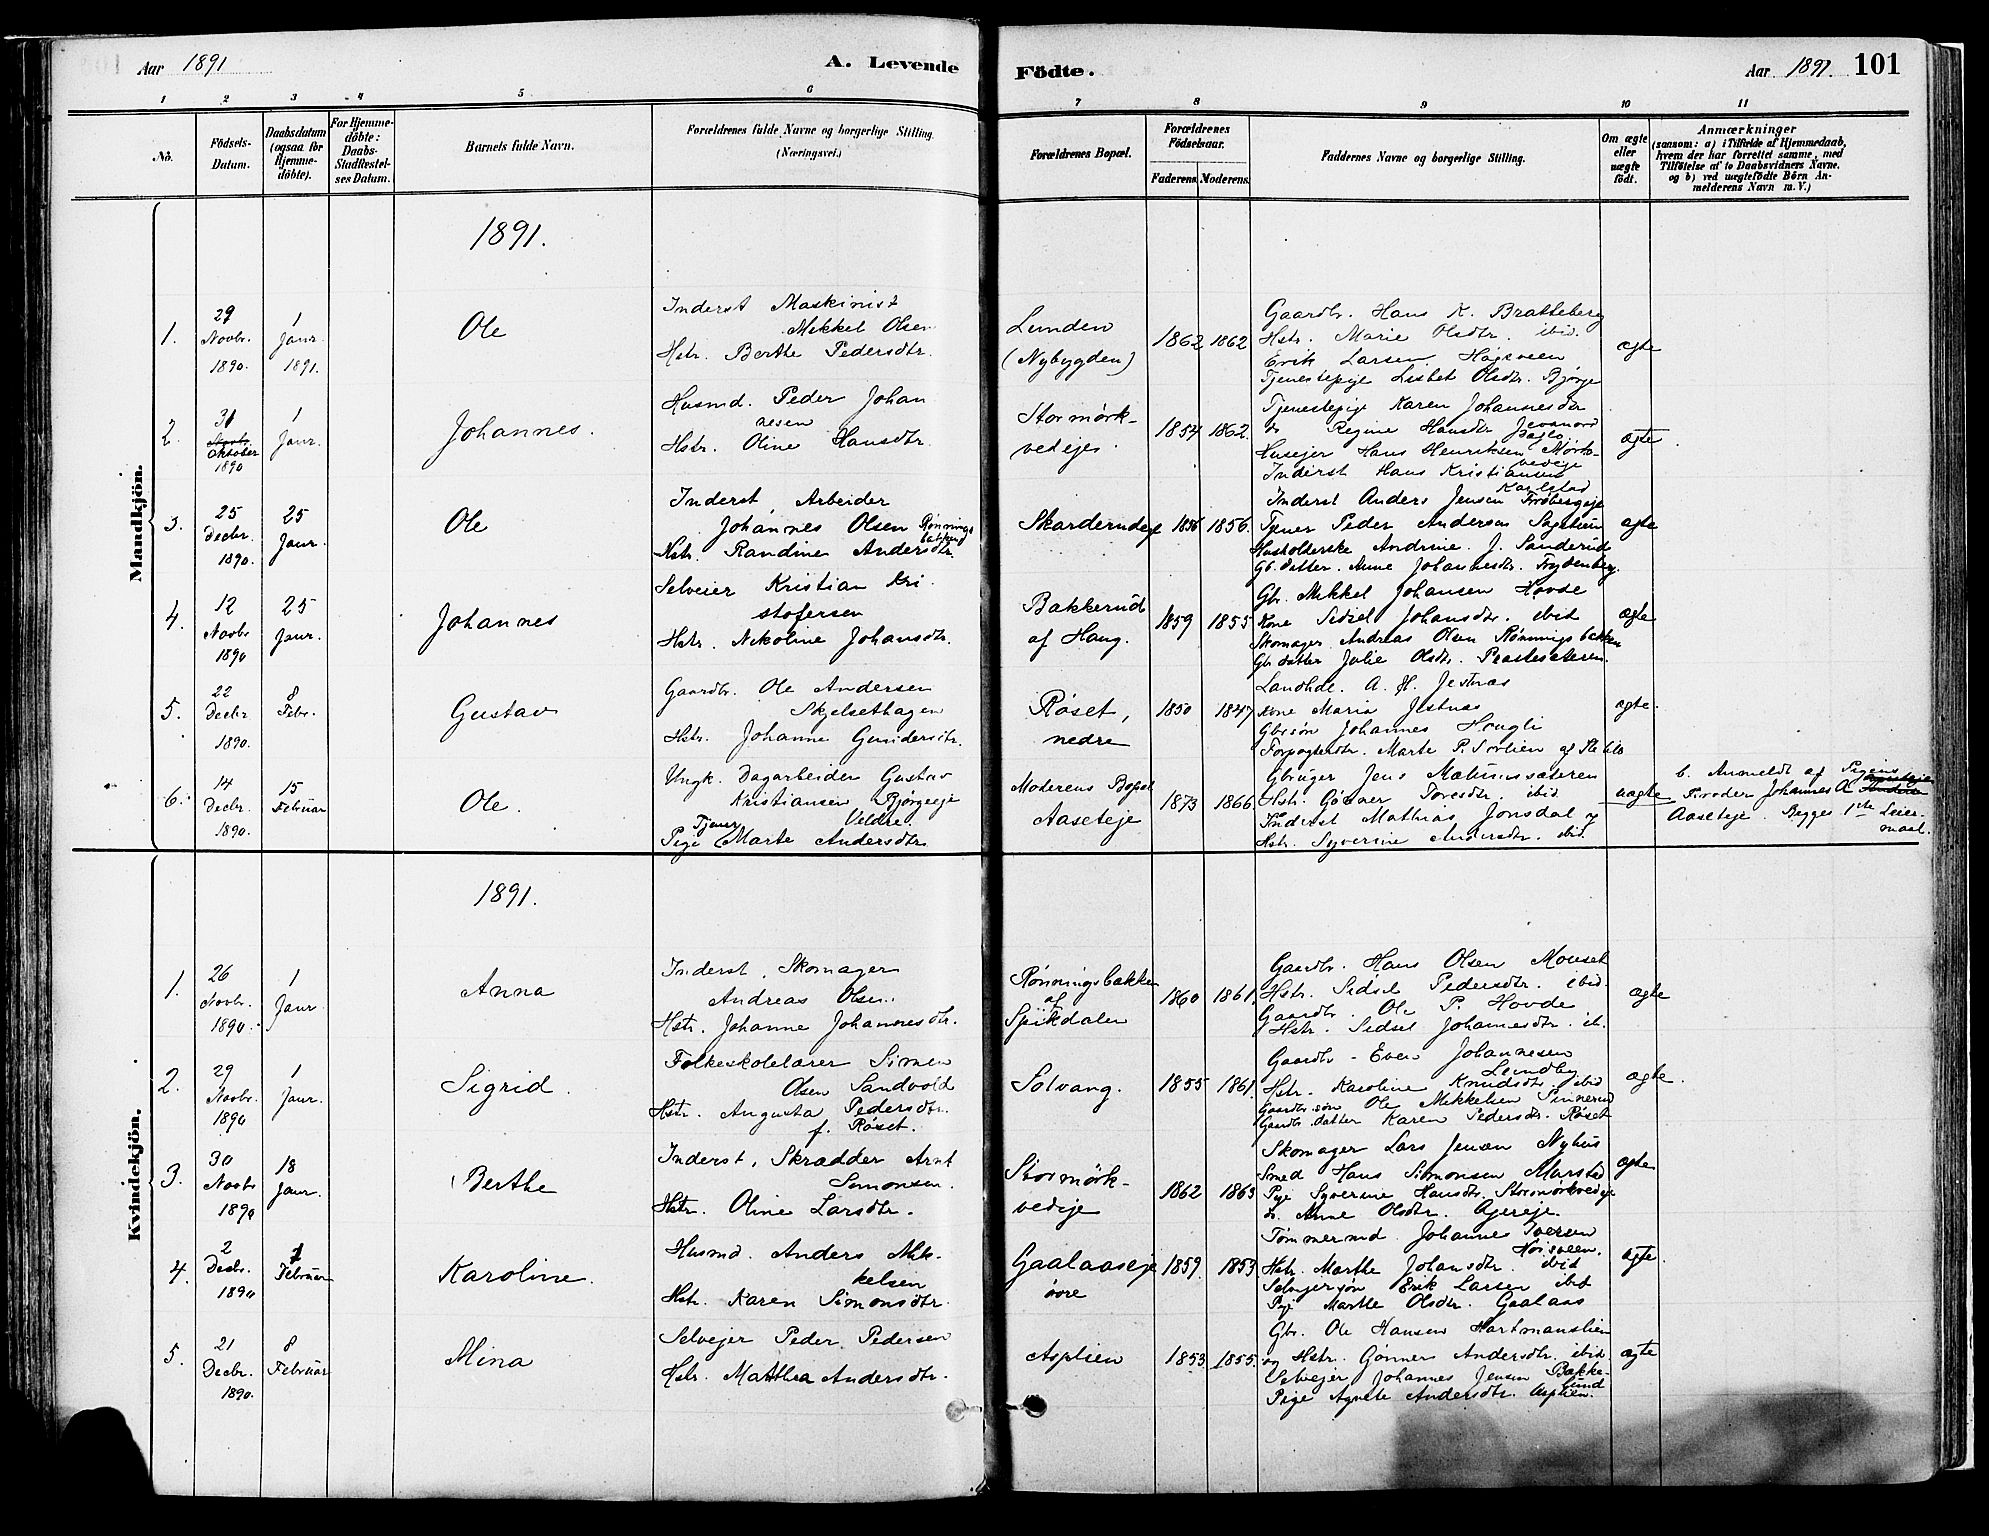 Aar 1891
A. Levende
Födte.
Aar 1891. 101
1 2 3 4 5 6 7 8 9 10 11
No.
Födsels-Datum.
Daabsdatum (ogsaa for Hjemme-döbte).
For Hjemme-döbte: Daabs-Stadfestel-ses Datum.
Barnets fulde Navn.
Forældrenes fulde Navne og borgerlige Stilling. (Næringsvei.)
Forældrenes Bopæl.
Forældrenes Födselsaar.
Faderens. Moderens.
Faddernes Navne og borgerlige Stilling.
Om ægte eller uægte födt.
Anmærkninger
(saasom: a) i Tilfælde af Hjemmedaab,
hvem der har forrettet samme, med
Tilföielse af to Daabsvidners Navne.
og b) ved uægtefödte Börn An-
melderens Navn m. V.)
Mandkjön.
1891.
1.
29 Novbr. 1890.
1 Janr. 1891.
Ole
Inderst Maskinist
Mikkel Olsen
Hstr. Berthe Pedersdtr.
Lunden
(Nybygden)
1862 1862
Gaardbr. Hans K. Bratteberg
Hstr. Marie Olsdtr. ibid.
Erik Larsen Høgeveen
Tjenestepige Lisbet Olsdtr. Bjørge
ægte
2.
31 Oktober 1890
1 Janr.
Johannes.
Husmd. Peder Johan
nesen
Hstr. Oline Hansdtr.
Stormørk-
vedejes.
1854 1862.
Tjenestepige Karen Johannesdtr
do Regine Hansdtr
Husejer Hans Henriksen Mørk-
vedeje
Inderst Hans Kristiansen
Karlstad
ægte
3.
25 Decbr. 1890.
25 Janr.
Ole
Inderst, Arbeider
Johannes Olsen Rønnings
bakken
Hstr. Randine Andersdtr
Skarderudeje
1856 1856.
Inderst Anders Jensen Frøbergeje
Tjener Peder Andersen
Husholderske Andrine J. Sanderud
Gb. datter. Anne Johannesdtr. Frydenberg.
ægte
4.
12 Novbr 1890
25 Janr.
Johannes
Selveier Kristian Kri
stofersen
Hstr. Nikoline Johansdtr.
Bakkerud
af Haug.
1859 1855
Gbr. Mikkel Johansen Hovde
Kone Sidsel Johansdtr. ibid
Skomager Andreas Olsen Rønningsbakken
Gb. datter Julie Olsdtr. Prestesæteren.
ægte
5.
22 Decbr 1890.
8 Febr.
Gustav
Gaardbr. Ole Andersen
Skjelsethagen
Hstr. Johanne Gundersdtr.
Røset,
nedre
1850 1847
Landhdl. A. H. Jestnæs
Kone Maria Jestnæs
Gbrsøn Johannes Hougli
Forpagterdtr. Marte P. Sorlien
ægte.
6.
14 Decbr. 1890.
15 Februar
Ole.
Ungk. Dagarbeider Gustav
Kristiansen Bjørgeeje
Veldre.
Tjener
Pige Marte Andersdtr
Moderens Bopel
Aaseteje
1873 1866
Gbruger Jens Mælumssæteren
Hstr. Gønner Toresdtr. ibid
Inderst Mathias Jonsdal og
Hstr. Syverine Andersdtr. ibid
uægte
b. Anmeldt af Pigens
Broder Johannes A
Aaseteje. Begges 1ste Leier-
maal.
Kvindekjön.
1891.
1.
26 Novbr. 1890.
1 Janr.
Anna
Inderst, Skomager
Andreas Olsen.
Hstr. Johanne Johannesdtr.
Rønningsbakken
af
Spikdalen
1860 1861.
Gaardbr. Hans Olsen Mouset
Hstr. Sidsel Pedersdtr. ibid.
Gaardbr. Ole P. Hovde
Hstr. Sidsel Johannesdtr. ib.
ægte
2.
29 Novbr. 1890
1 Janr.
Sigrid.
Folkeskolelærer Simen
Olsen Sandvold
Hstr. Augusta Pedersdtr.
f. Røset.
Solvang.
1855 1861.
Gaardbr - Even Johannesen
Lundby
Hstr. Karoline Knudsdtr. ibid
Gaardbr. søn Ole Mikkelsen Sinnerud
Gaardb. Datter Karen Pedersdtr. Røset
ægte.
3.
30 Novbr 1890
18 Janr.
Berthe
Inderst, Skrædder Arnt
Simonsen.
Hstr. Oline Larsdtr.
Stormørk-
vedeje
1862 1863
Skomager Lars Jensen Nyhus
Smed Hans Simonsen Marstad
Pige Syverine Hansdtr. Stormørkvedeje
do. Anne Olsdtr.
ægte
4.
2 Decbr. 1890
1 Februar
Karoline.
Husmd. Anders Mik-
kelsen
Hstr. Karen Simonsdtr.
Gaalaaseje
øvre
1859. 1853
Tømmermd Johannes Iversen
Norsveen.
Hstr. Marthe Johansdtr. ibid
Selvejersøn Erik Larsen ibid
Pige Marthe Olsdtr. Gaalaas
ægte.
5.
21 Decbr. 1890.
8 Februar
Mina
Selvejer Peder Pedersen
Hstr. Matthea Andersdtr.
Asplien
1853 1855.
Gbr. Ole Hansen Hartmanslien
og Hstr. Gønner Andersdtr. ibid
Selvejer Johannes Jensen Bakke-
lund
Pige Agnete Andersdtr. Asplien.
ægte